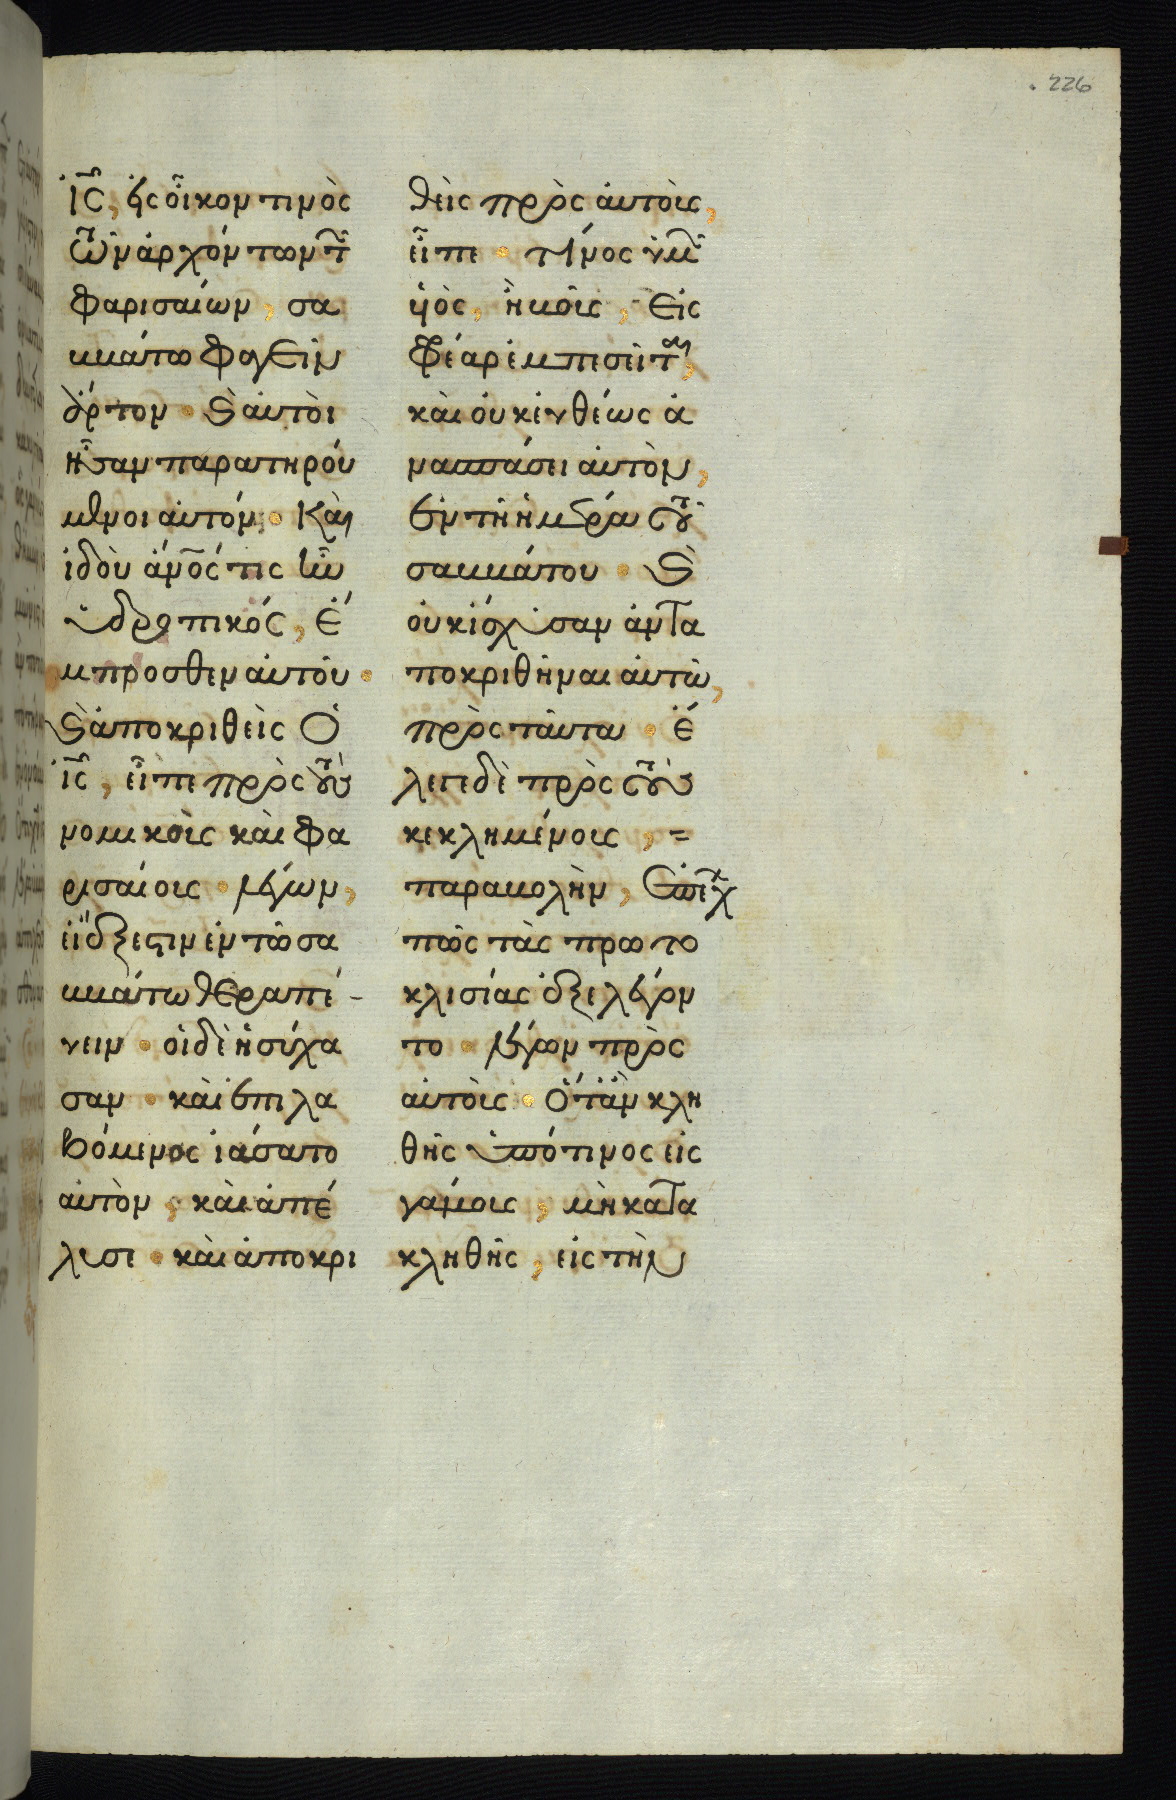 226
ἰς̄, εἰς οἶκον τινὸς
τῶν ἀρχόντων τ̄
φαρισαίων, σα
ββάτω φαγεῖν
ἄρτον · καὶ αὐτοὶ
ἦσαν παρατηρού
μενοι αὐτόν · Καὶ
ἰδοὺ ἄνο̄ς τις ἦν
ὑδρωπικός, ἔ
μπροσθεν αὐτοῦ ·
καὶ ἀποκριθεὶς ὁ
ἰς̄, εἶπε πρὸς τοὺς
νομικοὺς καὶ φα
ρισαίους · λέγων,
εἰ ἔξεστιν ἐν τῶ σα
ββάτω θεραπέ-
υειν · οἱ δὲ ἡσύχα
σαν · καὶ ἐπιλα
βόμενος ἰάσατο
αὐτὸν, καὶ ἀπέ
λυσε · καὶ ἀποκρι
θεὶς πρὸς αὐτοὺς,
εἶπε · τίνος ὑμῶν
ὑὸς, ἢ βοῦς, εἰς
φρέαρ ἐμπεσεῖται,
καὶ οὐκ εὐθέως ἀ
νασπάσει αὐτὸν,
ἐν τῆ ἡμέρα τοῦ
σαββάτου · καὶ
οὐκ ἴσχυσαν ἀντα
ποκριθῆναι αὐτῶ,
πρὸς ταῦτα · ἔ
λεγε δὲ πρὸς τοὺς
κεκλημένους, =
παραβολὴν, ἐπέχων
πῶς τὰς πρωτο
κλισίας ἐξελέγον
το · λέγων πρὸς
αὐτοὺς · ὅταν κλη
θῆς ὑπό τινος εἰς
γάμους, μὴ κατα
κληθῆς, εἰς τὴν